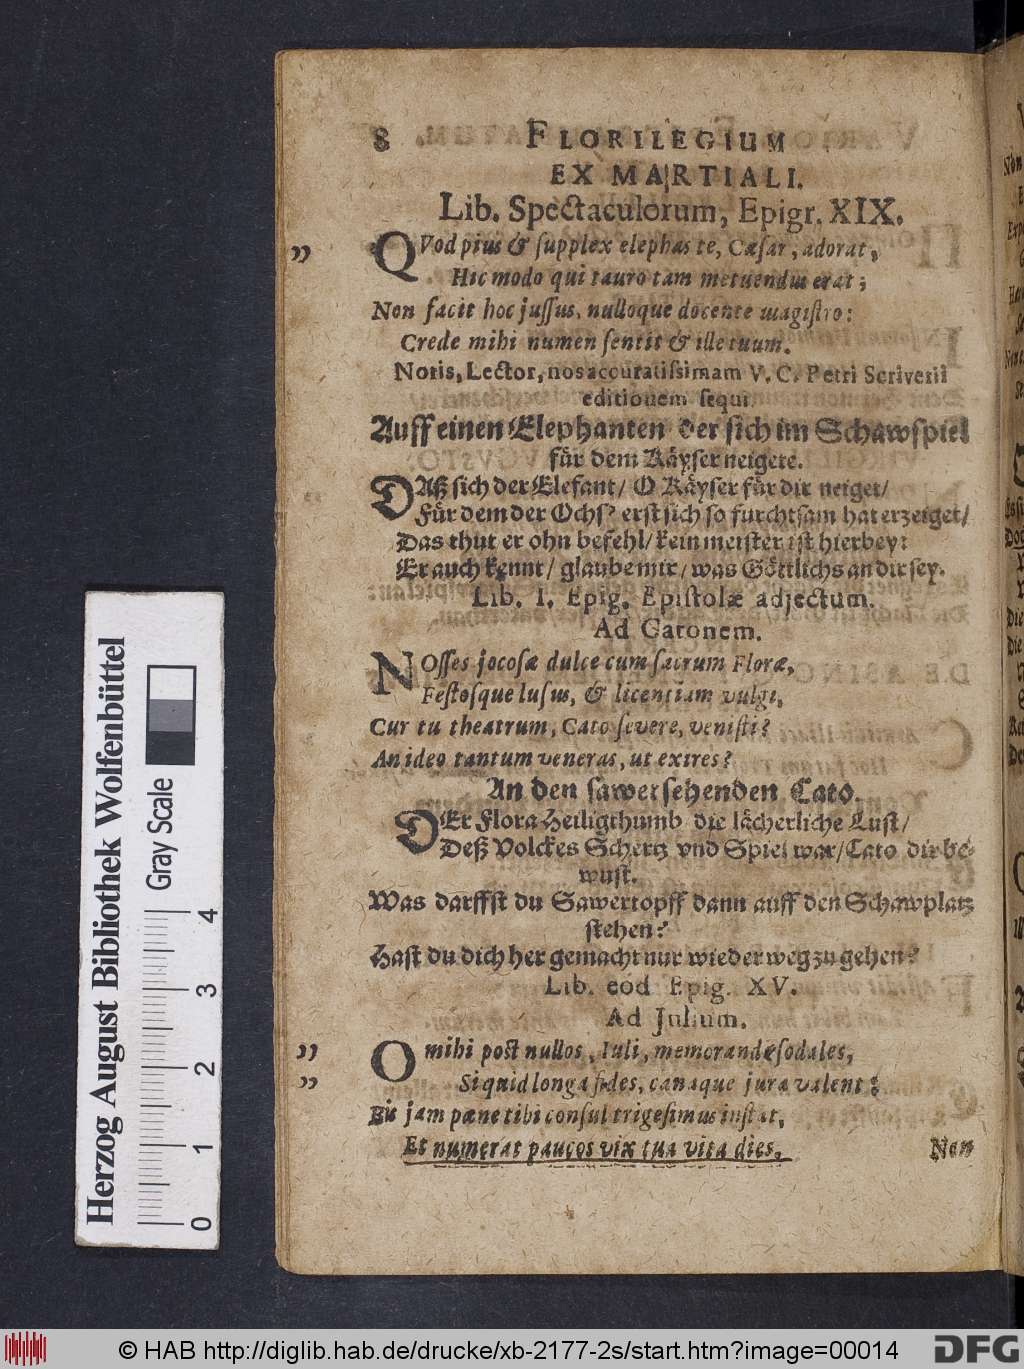 8 FLORILEGIUM
EX MARTIALI.
Lib. Spectaculorum, Epigr. XIX.
„ QVod pius & supplex elephas te, Cæsar, adorat,
Hic modo qui tauro tam metuendus erat;
Non facit hoc jussus, nulloque docente magistro:
Crede mihi numen sentit & ille tuum.
Notis, Lector, nos accuratissimam V. C. Petri Scriverii
editionem sequi.
Auff einen Elephanten der sich im Schawspiel
für dem Käyser neigete.
DAß sich der Elefant/ O Käyser für dir neiget/
Für dem der Ochs' erst sich so furchtsam hat erzeiget/
Das thut er ohn befehl/ kein meister ist hierbey:
Er auch kennt/ glaube mir/ was Göttlichs an dir sey.
Lib. I. Epig. Epistolæ adjectum.
Ad Catonem.
NOsses jocosæ dulce cum sacrum Floræ,
Festosque lusus, & licentiam vulgi,
Cur tu theatrum, Cato severe, venisti?
An ideo tantum veneras, ut exires?
An den sawersehenden Cato.
DEr Flora Heiligthumb die lächerliche Lust/
Deß Volckes Schertz vnd Spiel war/ Cato dir be-
wust.
Was darffst du Sawertopff dann auff den Schawplatz
stehen?
Hast du dich her gemacht nur wieder weg zu gehen?
Lib. eod Epig. XV.
Ad Julium.
„ O mihi post nullos, Iuli, memorande sodales,
„ Si quid longa fides, canaque jura valent;
Bis jam pæne tibi consul trigesimus instat,
Et numerat paucos vix tua vita dies.
Non
Herzog August Bibliothek Wolfenbüttel
Gray Scale
0 1 2 3 4
© HAB http://diglib.hab.de/drucke/xb-2177-2s/start.htm?image=00014
DFG